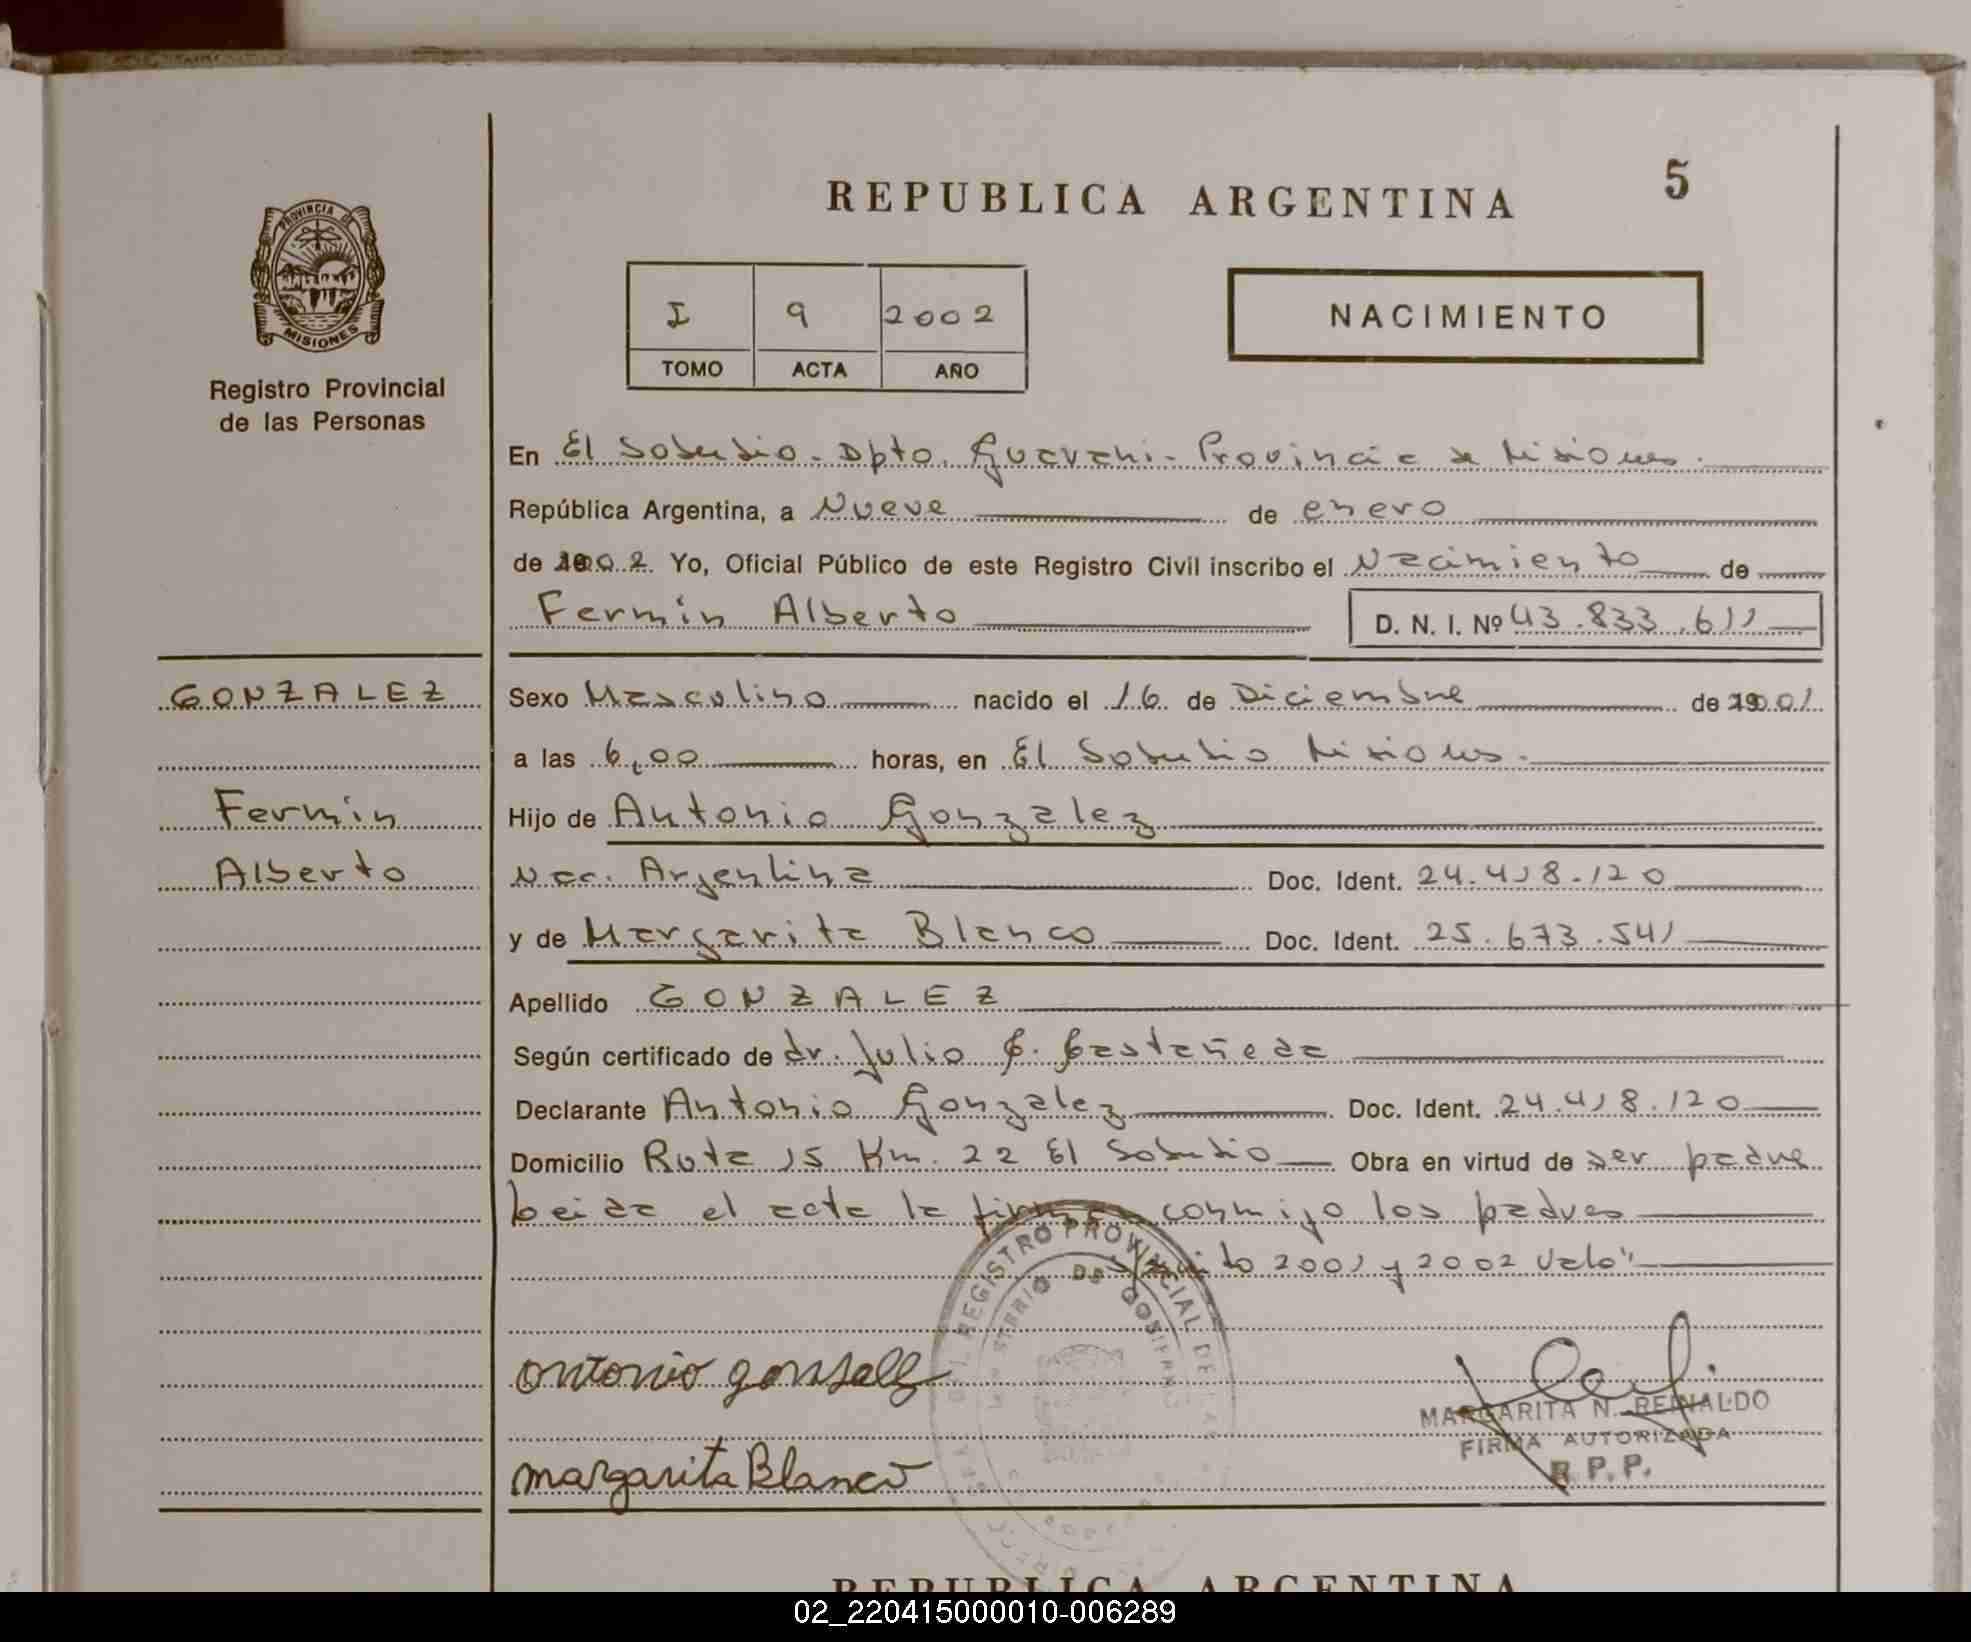 REPUBLICA ARGENTINA
5
PROVINCIA DE
MISIONES
Registro Provincial
de las Personas
I 9 2002
TOMO ACTA AÑO
NACIMIENTO
En El Soberbio - Dpto. Guarani - Provincia de Misiones.
República Argentina, a Nueve de enero
de 2002 Yo, Oficial Público de este Registro Civil inscribo el Nacimiento de
Fermin Alberto D. N. I. Nº 43.833.611
GONZALEZ
Fermin
Alberto
Sexo Masculino nacido el 16 de Diciembre de 2001
a las 6,00 horas, en El Soberbio Misiones.
Hijo de Antonio Gonzalez
Nac. Argentina Doc. Ident. 24.418.120
y de Margarita Blanco Doc. Ident. 25.673.541
Apellido GONZALEZ
Según certificado de dr. Julio C. Castañeda
Declarante Antonio Gonzalez Doc. Ident. 24.418.120
Domicilio Ruta 15 Km. 22 El Soberbio Obra en virtud de ser padre
Leida el acta la firman conmigo los padres
2001 y 2002 Vale"
REGISTRO PROVINCIAL DE LAS
DE GOBIERNO
antonio gonsalez
margarita Blanco
MARGARITA N. REINALDO
FIRMA AUTORIZADA
R.P.P.
REPUBLICA ARGENTINA
02_220415000010-006289